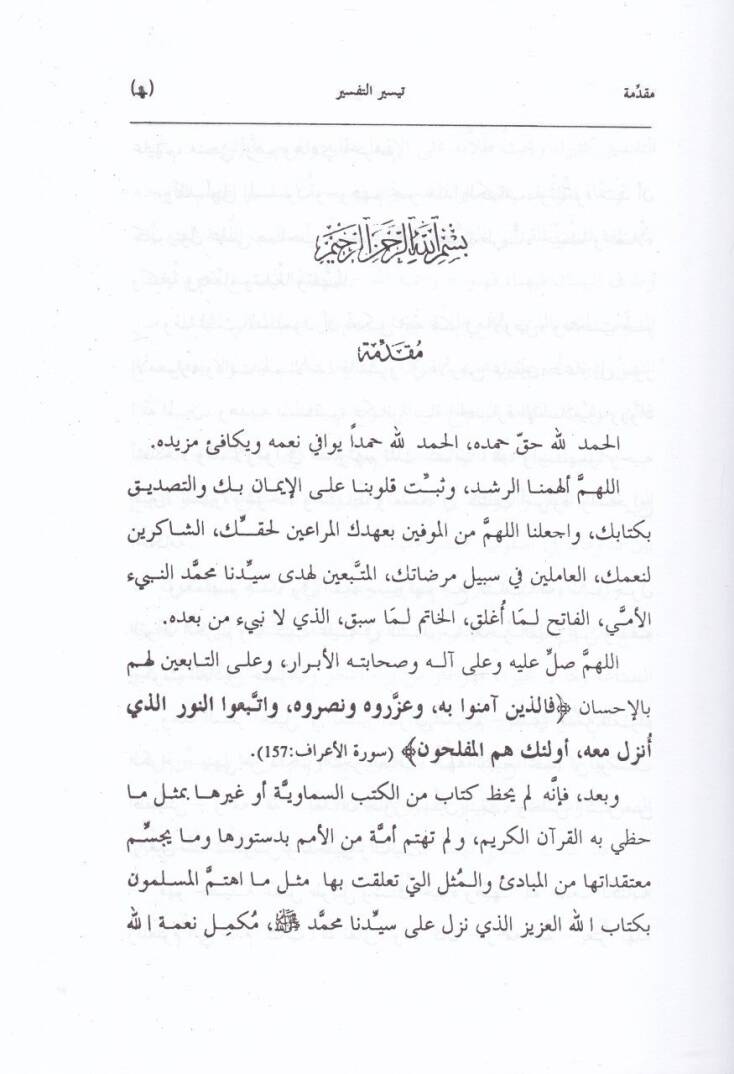 مقدِّمة
تيسير التفسير
بسم الله الرحمن الرحيم
مُقَدِّمَة
الحمد لله حقّ حمده، الحمد لله حمداً يوافي نعمه ويكافئ مزيده.
اللهمَّ ألهمنا الرشد، وثبِّت قلوبنا على الإيمان بك والتصديق
بكتابك، واجعلنا اللهمَّ من الموفين بعهدك المراعين لحقِّك، الشاكرين
لنعمك، العاملين في سبيل مرضاتك، المتَّبعين لهدى سيِّدنا محمَّد النبيء
الأمِّي، الفاتح لـمَا أُغلق، الخاتم لـمَا سبق، الذي لا نبيء من بعده.
اللهمَّ صلِّ عليه وعلى آلـه وصحابتـه الأبـرار، وعلـى التـابعين لهـم
بالإحسان ﴿فالذين آمنوا به، وعزَّروه ونصروه، واتَّبعوا النور الذي
أُنزل معه، أولئك هم المفلحون﴾ (سورة الأعراف:157).
وبعد، فإنَّه لم يحظ كتاب من الكتب السماويَّة أو غيرها بمثـل مـا
حظي به القرآن الكريم، ولم تهتم أمَّة من الأمم بدستورها ومـا يجسِّـم
معتقداتها من المبادئ والـمُثل التي تعلقت بها مثـل مـا اهتـمَّ المسلمون
بكتاب الله العزيز الذي نزل على سيِّدنا محمَّد ﷺ، مُكمِل نعمة الله